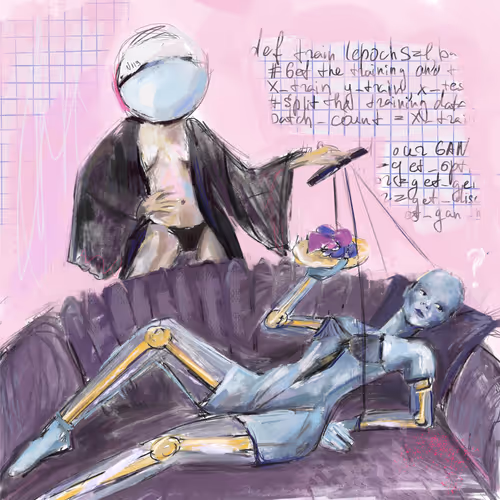 def train (epochs=1, ba
# Get the training and t
x_train y_train x_tes
# split the training data
batch_count = x_trai
our GAN
get_opt
= get_ge
= get_disc
gan
?